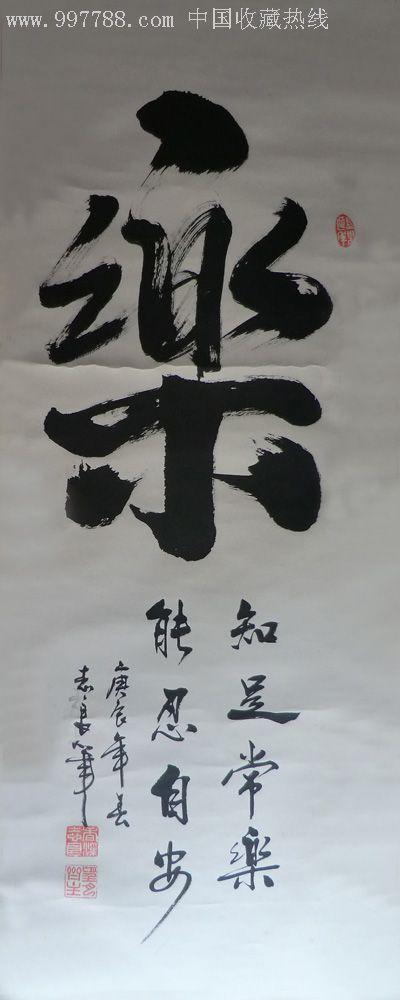 www.997788.com 中国收藏热线
樂
知足常樂
能忍自安
庚辰年春
志良筆